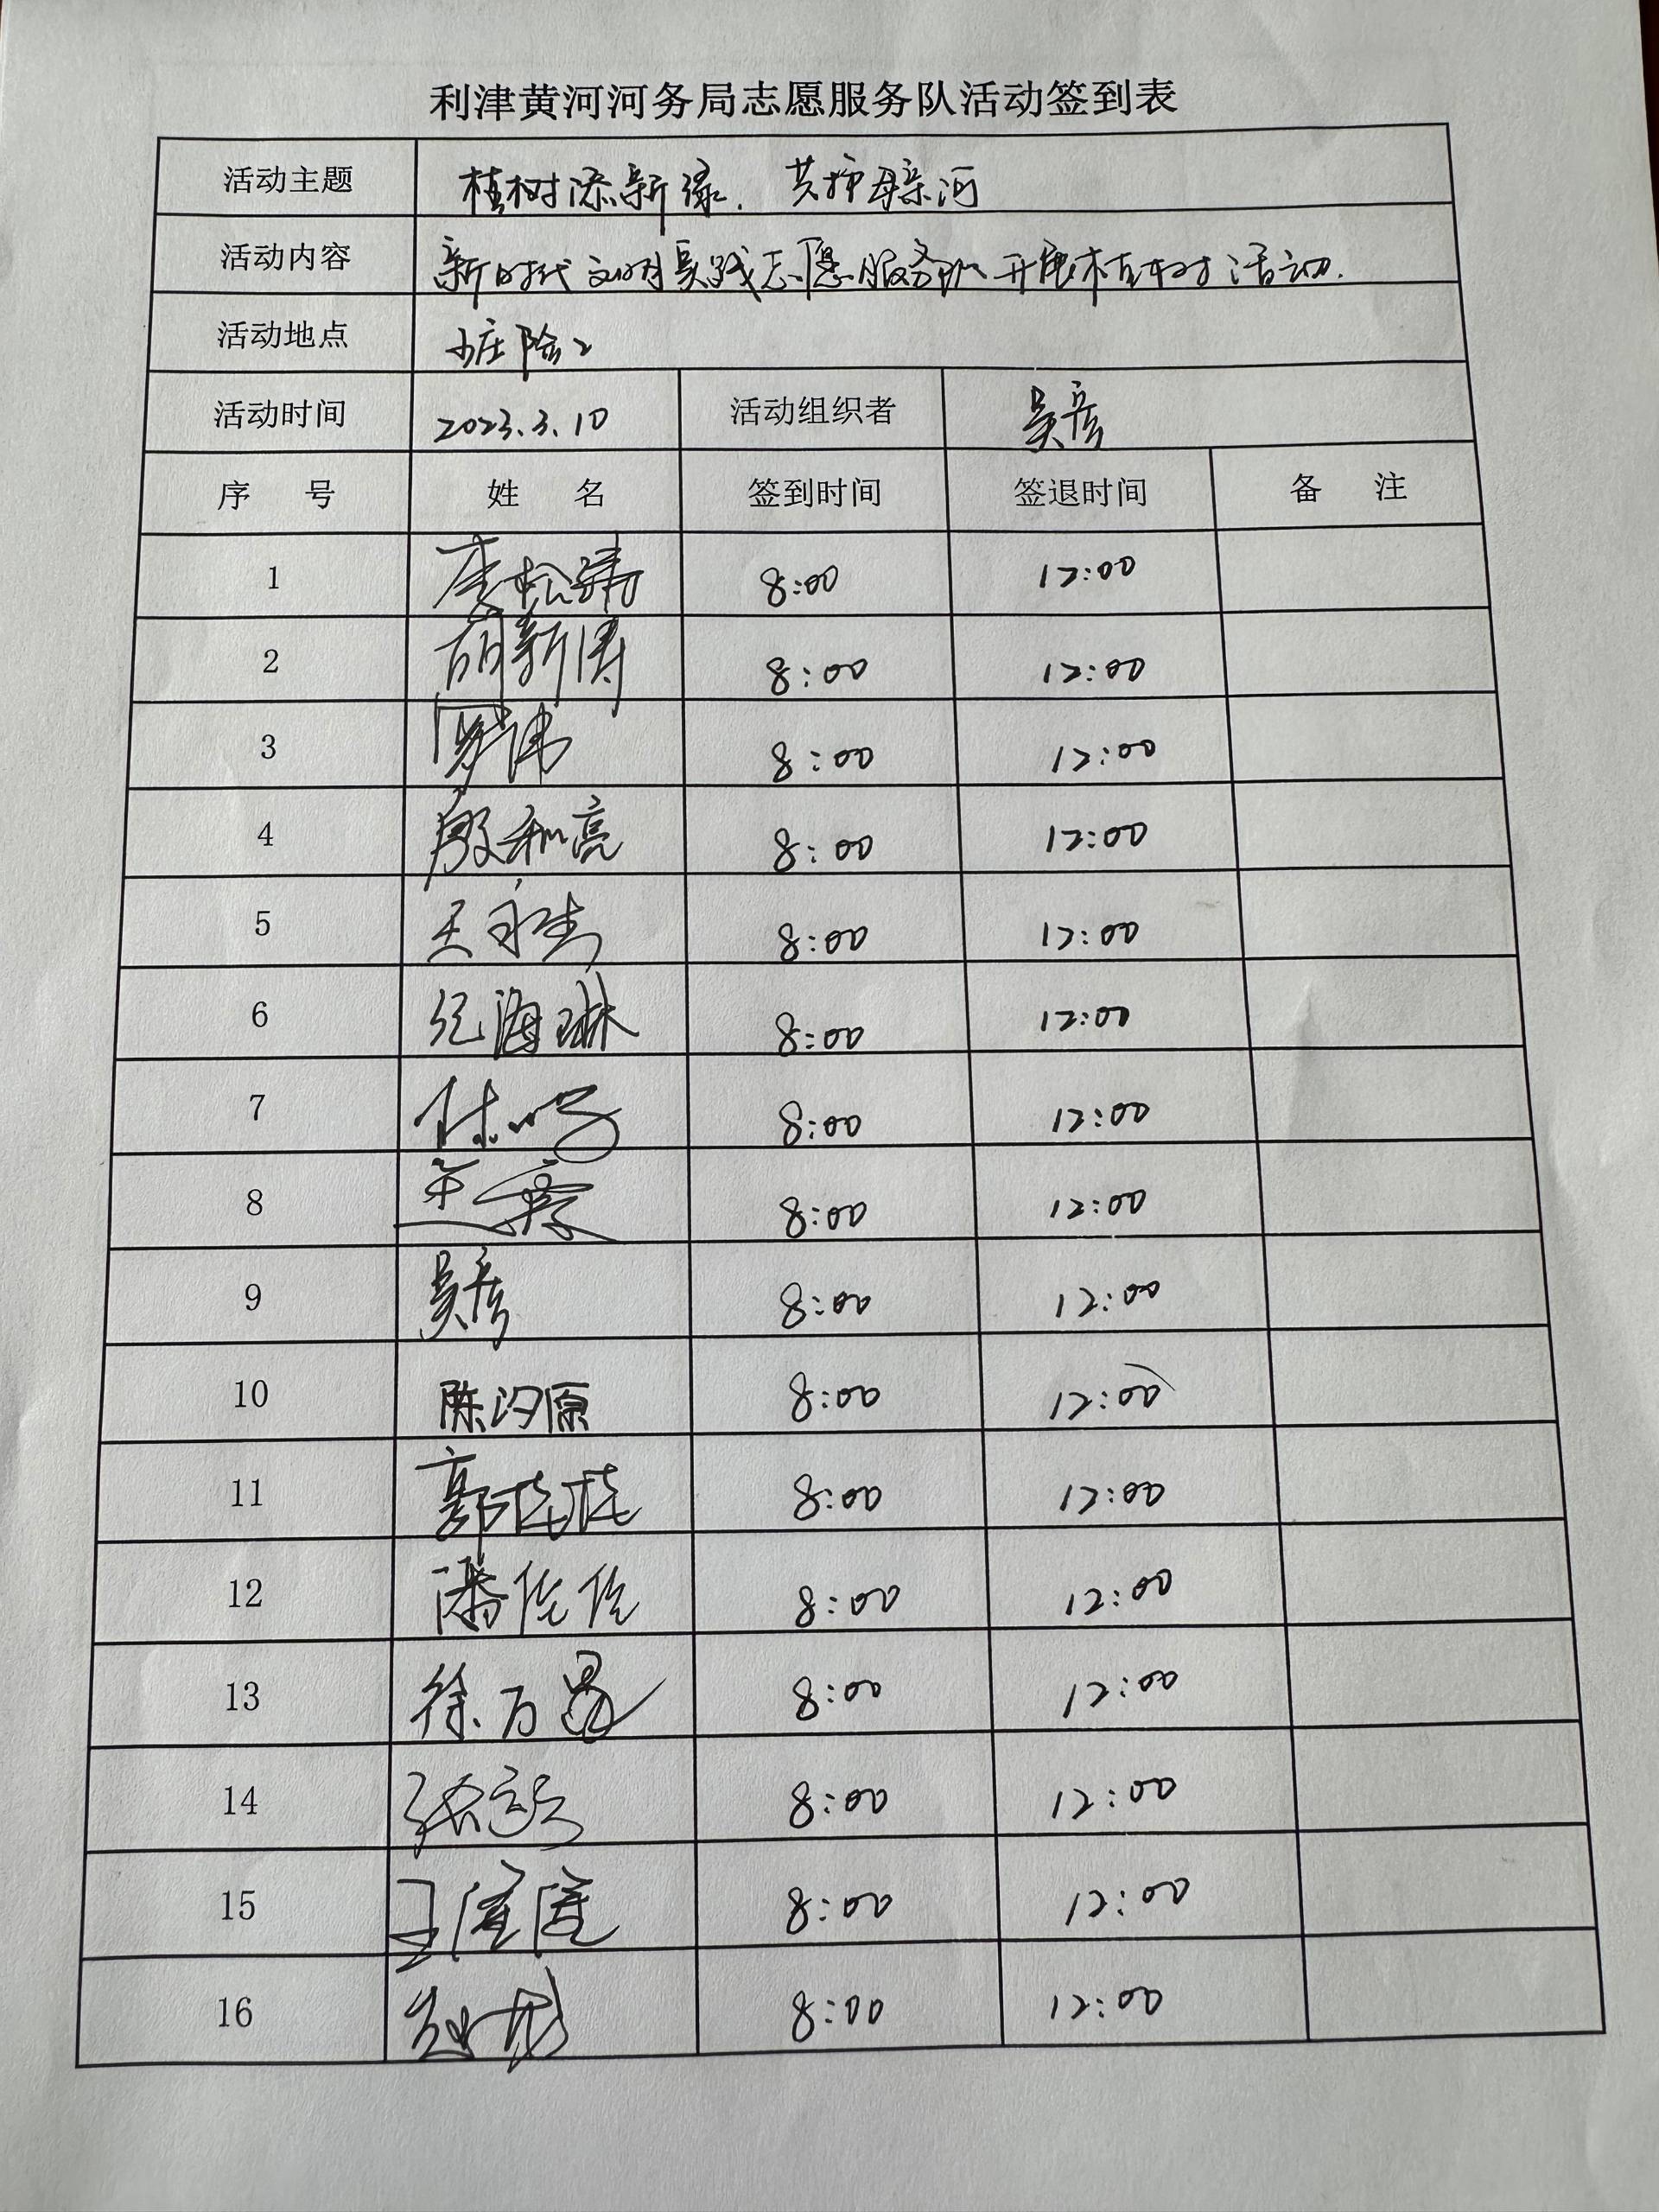 利津黄河河务局志愿服务队活动签到表
活动主题 植树添新绿. 共护母亲河
活动内容 新时代文明实践志愿服务队开展植树活动.
活动地点 小庄险工
活动时间 2023.3.10 活动组织者 吴彦
序 号 姓 名 签到时间 签退时间 备 注
1 8:00 12:00
2 胡新涛 8:00 12:00
3 罗伟 8:00 12:00
4 殷和亮 8:00 12:00
5 8:00 12:00
6 纪海琳 8:00 12:00
7 8:00 12:00
8 8:00 12:00
9 吴彦 8:00 12:00
10 陈汐原 8:00 12:00
11 8:00 12:00
12 8:00 12:00
13 8:00 12:00
14 8:00 12:00
15 8:00 12:00
16 8:00 12:00